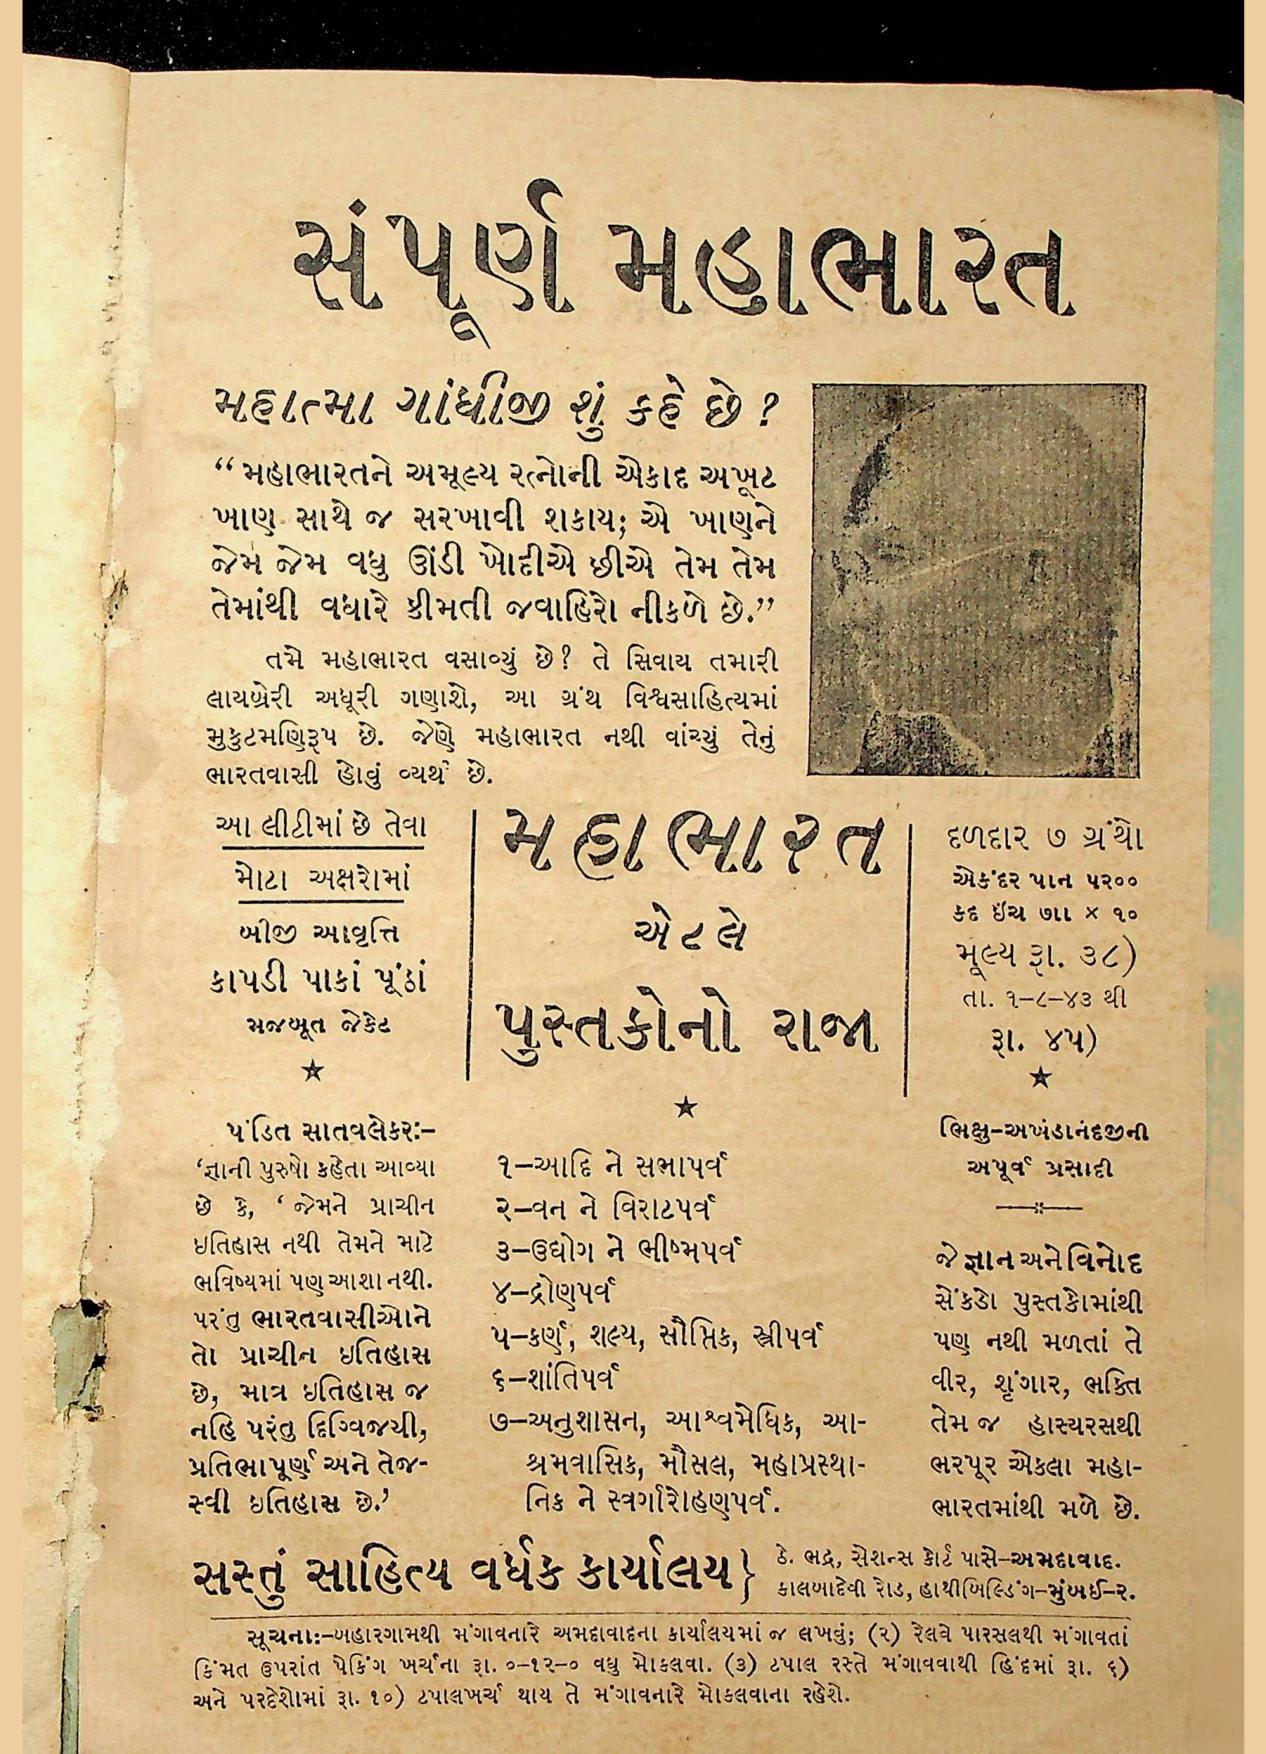 સંપૂર્ણ મહાભારત
મહાત્મા ગાંધીજી શું કહે છે ?
“ મહાભારતને અમૂલ્ય રત્નોની એકાદ અખૂટ
ખાણ સાથે જ સરખાવી શકાય; એ ખાણને
જેમ જેમ વધુ ઊંડી ખોદીએ છીએ તેમ તેમ
તેમાંથી વધારે કીમતી જવાહિરો નીકળે છે.”
તમે મહાભારત વસાવ્યું છે? તે સિવાય તમારી
લાયબ્રેરી અધૂરી ગણાશે, આ ગ્રંથ વિશ્વસાહિત્યમાં
મુકુટમણિરૂપ છે. જેણે મહાભારત નથી વાંચ્યું તેનું
ભારતવાસી હોવું વ્યર્થ છે.
આ લીટીમાં છે તેવા
મોટા અક્ષરોમાં
બીજી આવૃત્તિ
કાપડી પાકાં પૂંઠાં
મજબૂત જેકેટ
મહાભારત
એટલે
પુસ્તકોનો રાજા
દળદાર ૭ ગ્રંથો
એકંદર પાન ૫૨૦૦
કદ ઇંચ ૭ાા × ૧૦
મૂલ્ય રૂા. ૩૮)
તા. ૧–૮–૪૩ થી
રૂા. ૪૫)
પંડિત સાતવલેકરઃ–
‘જ્ઞાની પુરુષો કહેતા આવ્યા
છે કે, ‘ જેમને પ્રાચીન
ઇતિહાસ નથી તેમને માટે
ભવિષ્યમાં પણ આશા નથી.
પરંતુ ભારતવાસીઓને
તો પ્રાચીન ઇતિહાસ
છે, માત્ર ઇતિહાસ જ
નહિ પરંતુ દિગ્વિજયી,
પ્રતિભાપૂર્ણ અને તેજ-
સ્વી ઇતિહાસ છે.’
૧–આદિ ને સભાપર્વ
૨–વન ને વિરાટપર્વ
૩–ઉદ્યોગ ને ભીષ્મપર્વ
૪–દ્રોણપર્વ
૫–કર્ણ, શલ્ય, સૌપ્તિક, સ્ત્રીપર્વ
૬–શાંતિપર્વ
૭–અનુશાસન, આશ્વમેધિક, આ-
શ્રમવાસિક, મૌસલ, મહાપ્રસ્થા-
નિક ને સ્વર્ગારોહણપર્વ.
ભિક્ષુ–અખંડાનંદજીની
અપૂર્વ પ્રસાદી
જે જ્ઞાન અને વિનોદ
સેંકડો પુસ્તકોમાંથી
પણ નથી મળતાં તે
વીર, શૃંગાર, ભક્તિ
તેમ જ હાસ્યરસથી
ભરપૂર એકલા મહા-
ભારતમાંથી મળે છે.
સસ્તું સાહિત્ય વર્ધક કાર્યાલય}
ઠે. ભદ્ર, સેશન્સ કોર્ટ પાસે–અમદાવાદ.
કાલબાદેવી રોડ, હાથીબિલ્ડિંગ–મુંબઈ–૨.
સૂચનાઃ–બહારગામથી મંગાવનારે અમદાવાદના કાર્યાલયમાં જ લખવું; (૨) રેલવે પારસલથી મંગાવતાં
કિંમત ઉપરાંત પેકિંગ ખર્ચના રૂા. ૦–૧૨–૦ વધુ મોકલવા. (૩) ટપાલ રસ્તે મંગાવવાથી હિંદમાં રૂા. ૬)
અને પરદેશોમાં રૂા. ૧૦) ટપાલખર્ચ થાય તે મંગાવનારે મોકલવાના રહેશે.